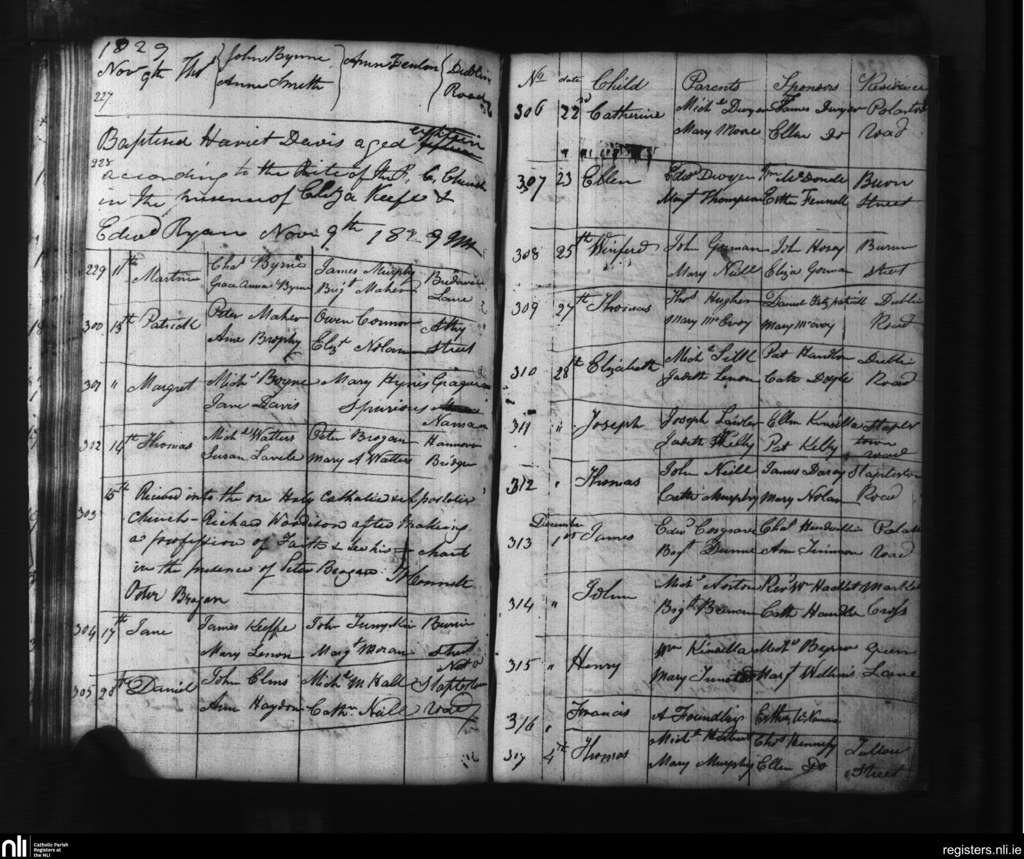 1829
Nov 9th Thos John Byrne Ann Fenlon Dublin
227 Anne Smith Road
Baptised Harriet Davis aged
228 according to the Rite of the R. C. Church
in the presence of Eliza Keefe &
Edwd Ryan Novr 9th 1829
229 11th Martin Chas Byrne James Murphy
Grace Anna Byrne Brigt Maher Lane
300 13th Patrick Peter Maher Owen Connor Athy
Anne Brophy Elizt Nolan Street
301 " Margret Michl Byrne Mary Hynes Graigue
Jane Davis Spurious
302 14th Thomas Michl Watters Peter Brogan Hanover
Susan Lavele Mary A Watters Bridge
15th Received into the one Holy Catholic & Apostolic
303 Church - Richard after making
a profession of Faith &
in the presence of Peter Brogan
Peter Brogan
304 17th Jane James Keeffe John
Mary Lenon Margt Moran Street
305 28th Daniel John Elms Michl McHall Stapletown
Ann Haydon Cathn Neill Road
No date Child Parents Sponsors Residence
306 22nd Catherine Michl Dwyer James Dwyer
Mary Moore Ellen Do Road
307 23 Ellen Edwd Dwyer Wm McDonald Burn
Margt Thompson Esther Fennell Street
308 25th Winifred Joh Gorman Joh Hosey Burn
Mary Neill Eliza Gorman Street
309 27th Thomas Thos Hughes Daniel Fitzpatrick Dublin
Mary McEvoy Mary McEvoy Road
310 28th Elizabeth Michl Pat Hanlon Dublin
Judith Lenon Cath Doyle Road
311 " Joseph Joseph Lawler Ellen Kinsella Staple
Judith Pat Kelly town
road
312 " Thomas John Neill James Darcy Stapletown
Cath Murphy Mary Nolan Road
December
313 1st James Edwd Cosgrave Chas
Brigt Dunne Ann Road
314 " John Michl Norton Revd W Market
Brigt Brennan Cath Cross
315 " Henry Wm Kinsella Michl Byrne Green
Mary Margt Lane
316 " Francis A Foundling Esther
317 4th Thomas Michl Chas Kennefy Tullow
Mary Murphy Ellen Do Street
nli Catholic Parish
Registers at
the NLI
registers.nli.ie